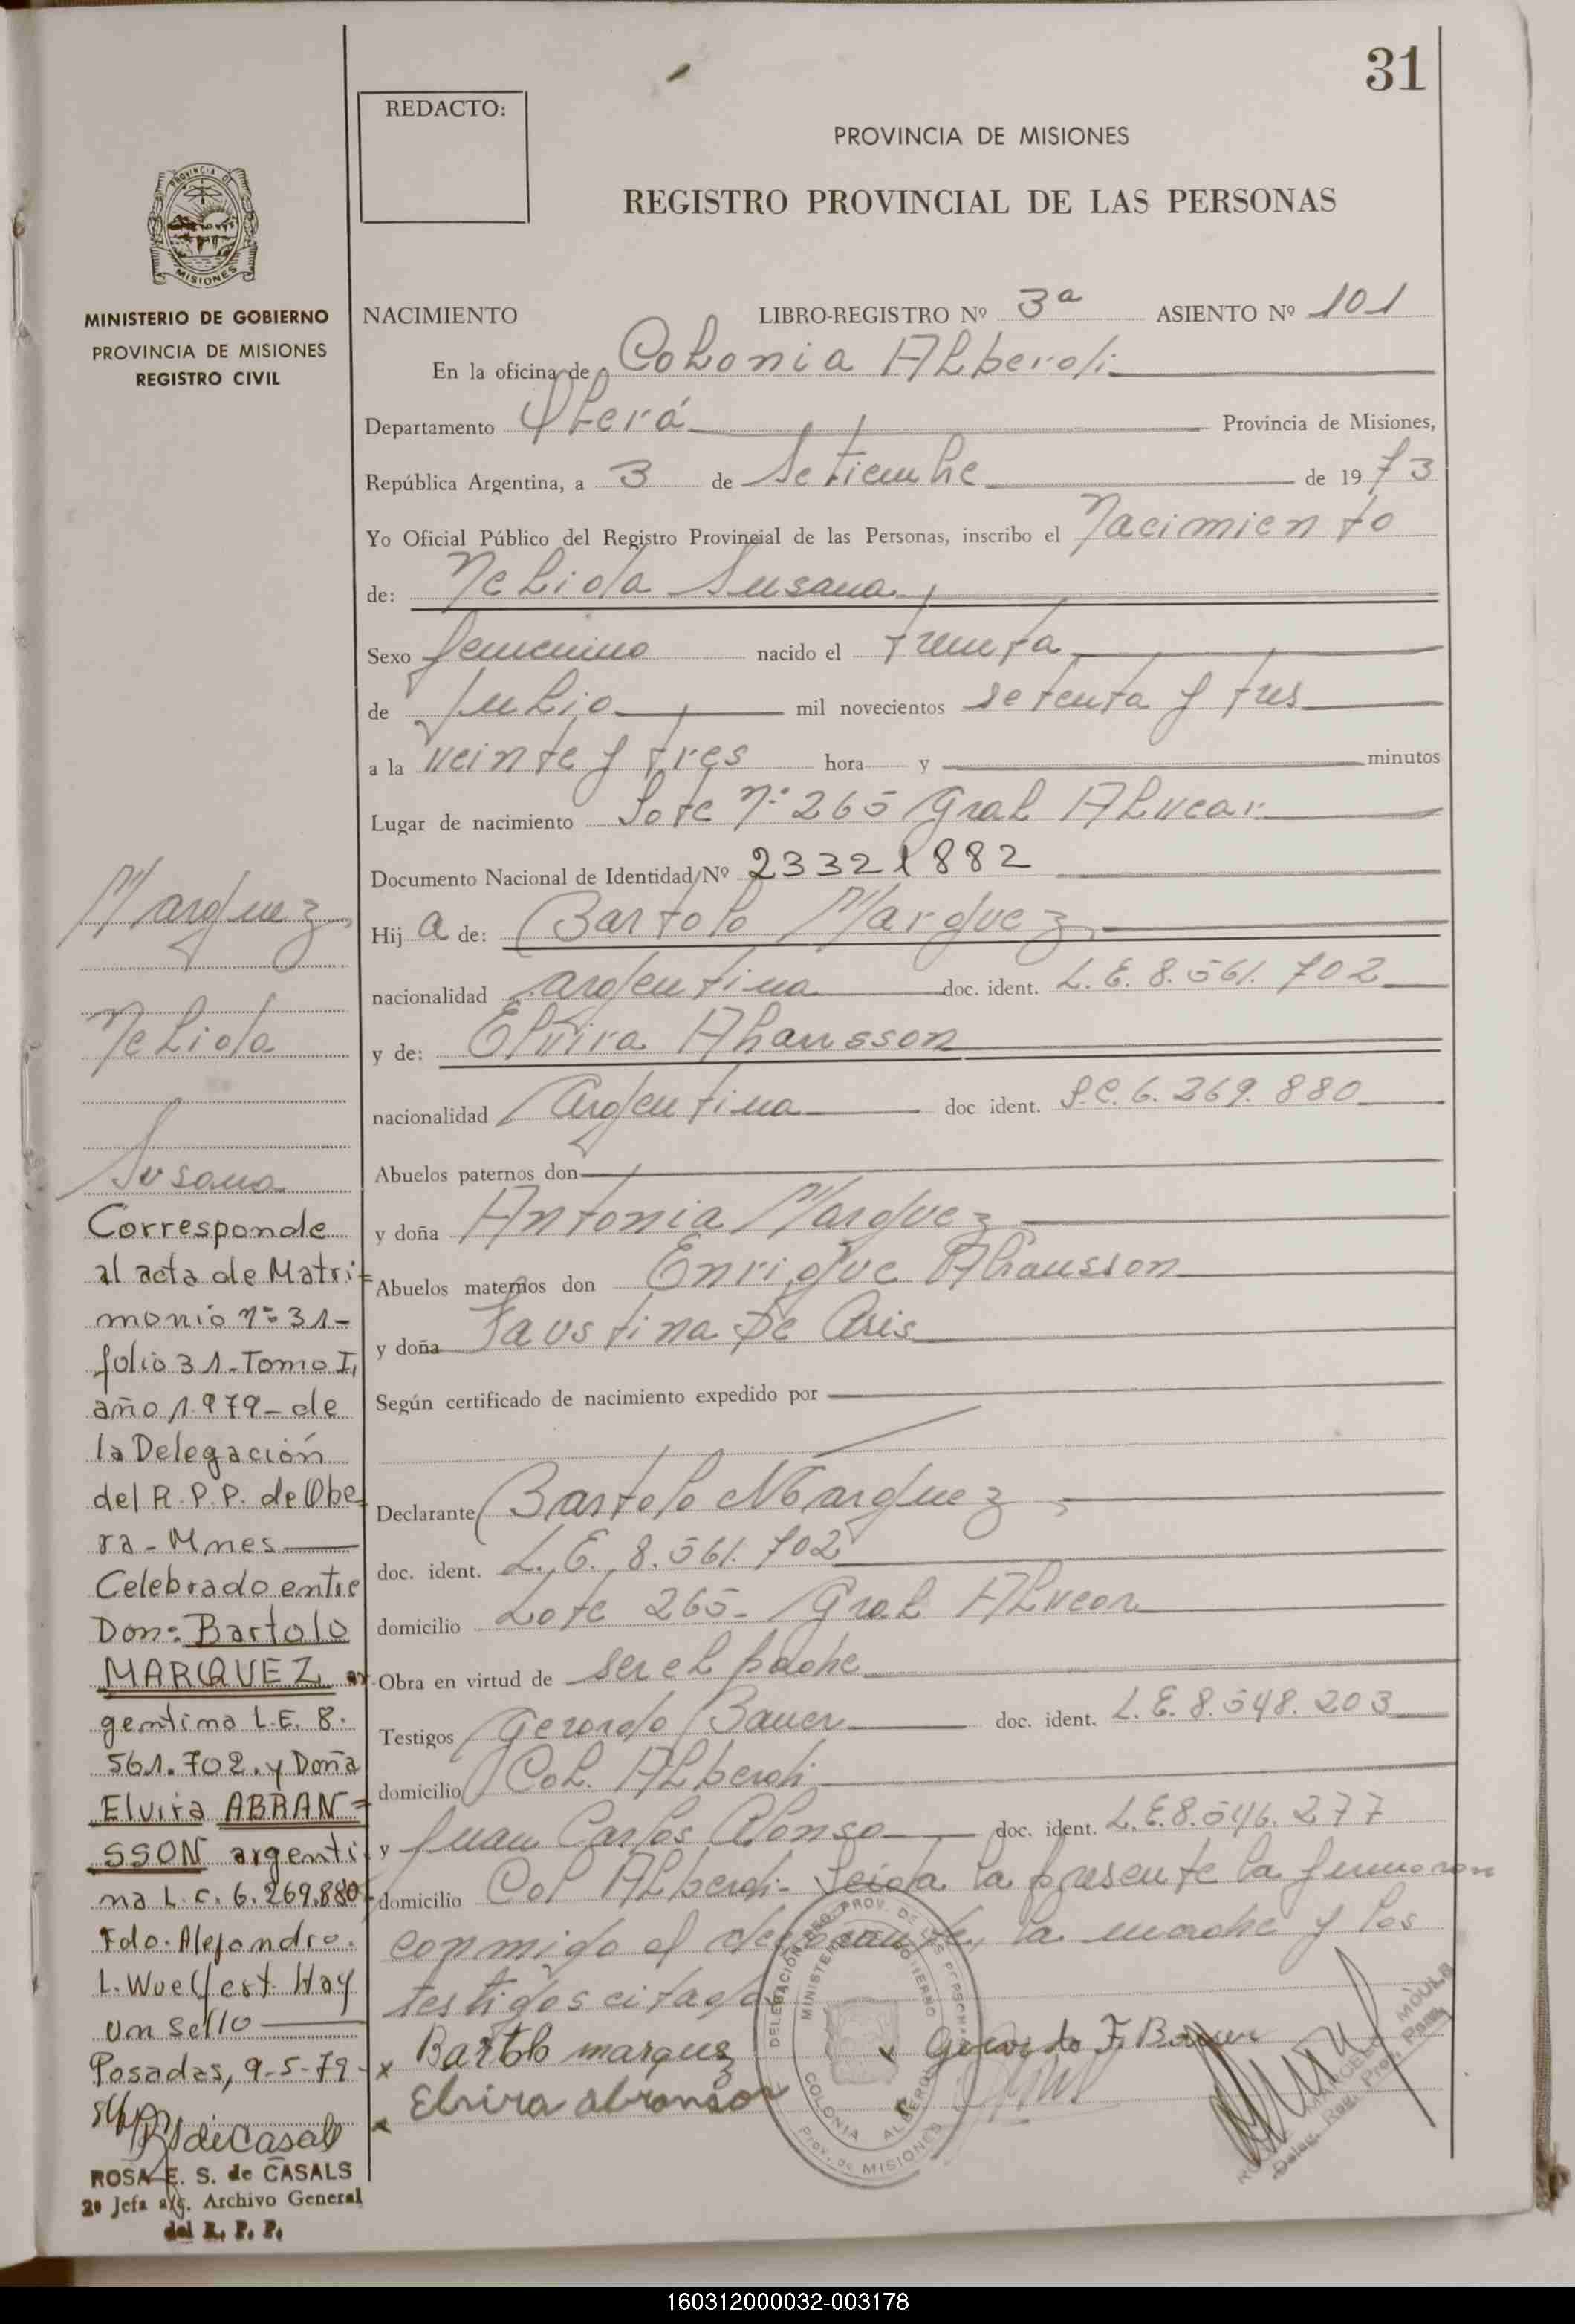 31
REDACTO:
PROVINCIA DE MISIONES
REGISTRO PROVINCIAL DE LAS PERSONAS
PROVINCIA DE
MISIONES
MINISTERIO DE GOBIERNO
PROVINCIA DE MISIONES
REGISTRO CIVIL
NACIMIENTO LIBRO-REGISTRO Nº 3ª ASIENTO Nº 101
En la oficina de Colonia Alberdi
Departamento Oberá Provincia de Misiones,
República Argentina, a 3 de Setiembre de 1973
Yo Oficial Público del Registro Provincial de las Personas, inscribo el Nacimiento
de: Nelida Susana
Sexo femenino nacido el treinta
de Julio mil novecientos setenta y tres
a la veinte y tres hora y minutos
Lugar de nacimiento Lote Nº 265 Gral Alvear
Documento Nacional de Identidad Nº 23321882
Hij a de: Bartolo Marquez
nacionalidad argentina doc. ident. L.E. 8.561.702
y de: Elvira Abransson
nacionalidad Argentina doc ident. L.C. 6.269.880
Abuelos paternos don
y doña Antonia Marquez
Abuelos maternos don Enrique Abransson
y doña Faustina De Asis
Según certificado de nacimiento expedido por
Declarante Bartolo Marquez
doc. ident. L.E. 8.561.702
domicilio Lote 265- Gral Alvear
Obra en virtud de ser el padre
Testigos Gerardo Bauer doc. ident. L.E. 8.548.203
domicilio Col. Alberdi
y Juan Carlos Alonso doc. ident. L.E. 8.546.277
domicilio Col Alberdi- Leida la presente la firmaron
conmigo el declarante, la madre y los
testigos citados
x Bartolo marquez
Gerardo F. Bauer
x Elvira abranson
DELEGACIÓN REG. PROV. DE LAS PERSONAS
MINISTERIO DE GOBIERNO
COLONIA ALBERDI
Prov. de MISIONES
Deleg. Reg. Prov. Pers.
Marquez
Nelida
Susana
Corresponde
al acta de Matri=
monio nº 31-
folio 31-Tomo I,
año 1979- de
la Delegación
del R.P.P. de Obe=
ra - Mnes
Celebrado entre
Don: Bartolo
MARQUEZ ar-
gentino L.E. 8.
561.702. y Doña
Elvira ABRAN=
SSON argenti
na L.C. 6.269.880
Fdo. Alejandro.
L. Wuelfert. Hay
un sello
Posadas, 9-5-79-
ROSA E. S. de CASALS
2º Jefa a/c. Archivo General
del R. P. P.
160312000032-003178